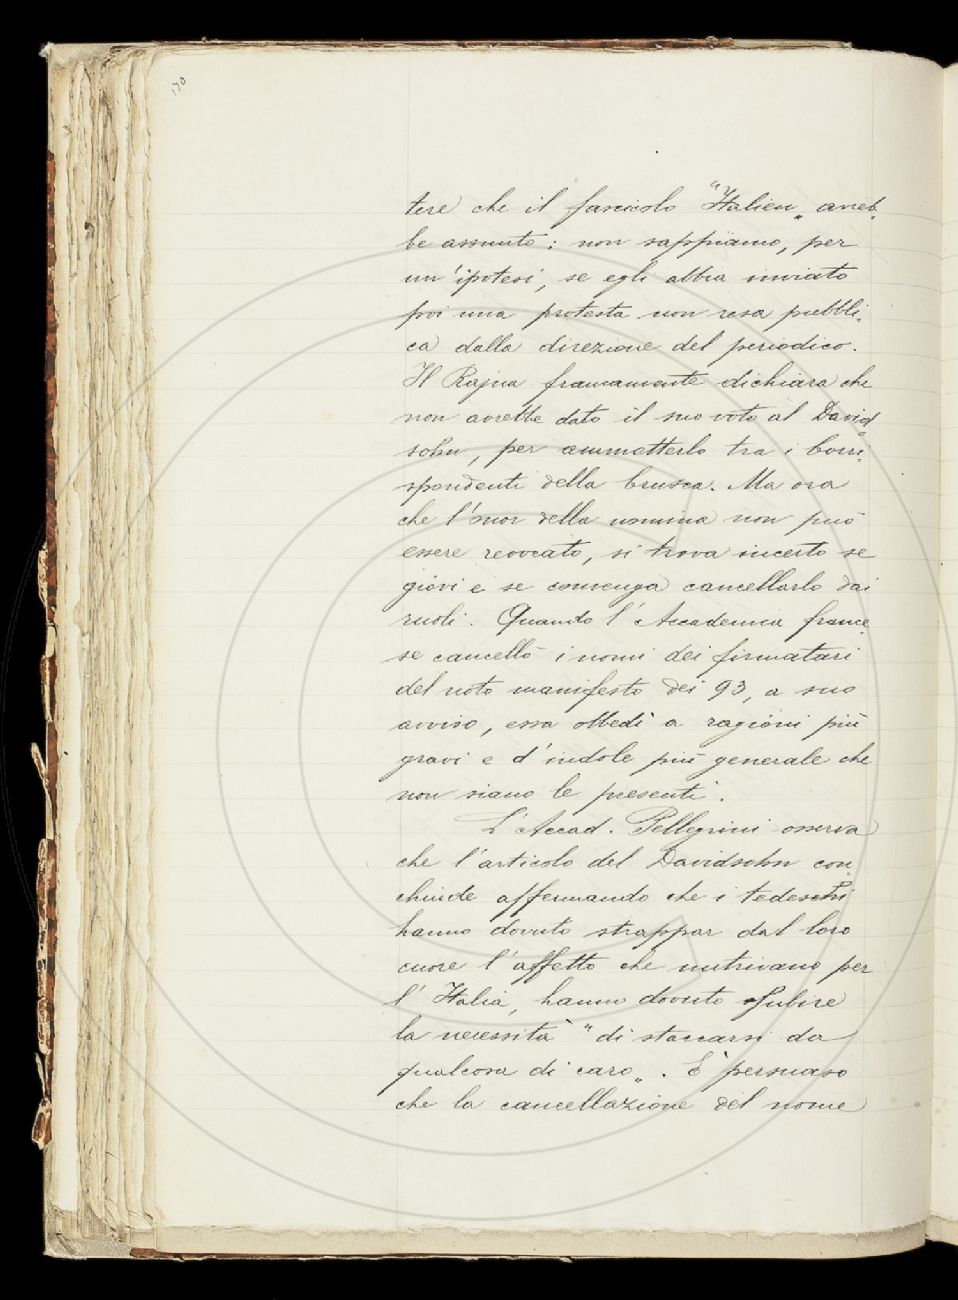 170
tere che il fascicolo "Italien„ avreb-
be assunto: non sappiamo, per
un'ipotesi, se egli abbia inviato
poi una protesta non resa pubbli-
ca dalla direzione del periodico.
Il Rajna francamente dichiara che
non avrebbe dato il suo voto al David-
sohn, per ammetterlo tra i corri-
spondenti della Crusca. Ma ora
che l'onor della nomina non può
essere revocato, si trova incerto se
giovi e se convenga cancellarlo dai
ruoli. Quando l'Accademia france-
se cancellò i nomi dei firmatari
del noto manifesto dei 93, a suo
avviso, essa obbedì a ragioni più
gravi e d'indole più generale che
non siano le presenti.
L'Accad. Pellegrini osserva
che l'articolo del Davidsohn con-
chiude affermando che i tedeschi
hanno dovuto strappar dal loro
cuore l'affetto che nutrivano per
l'Italia, hanno dovuto subire
la necessità "di staccarsi da
qualcosa di caro„. È persuaso
che la cancellazione del nome